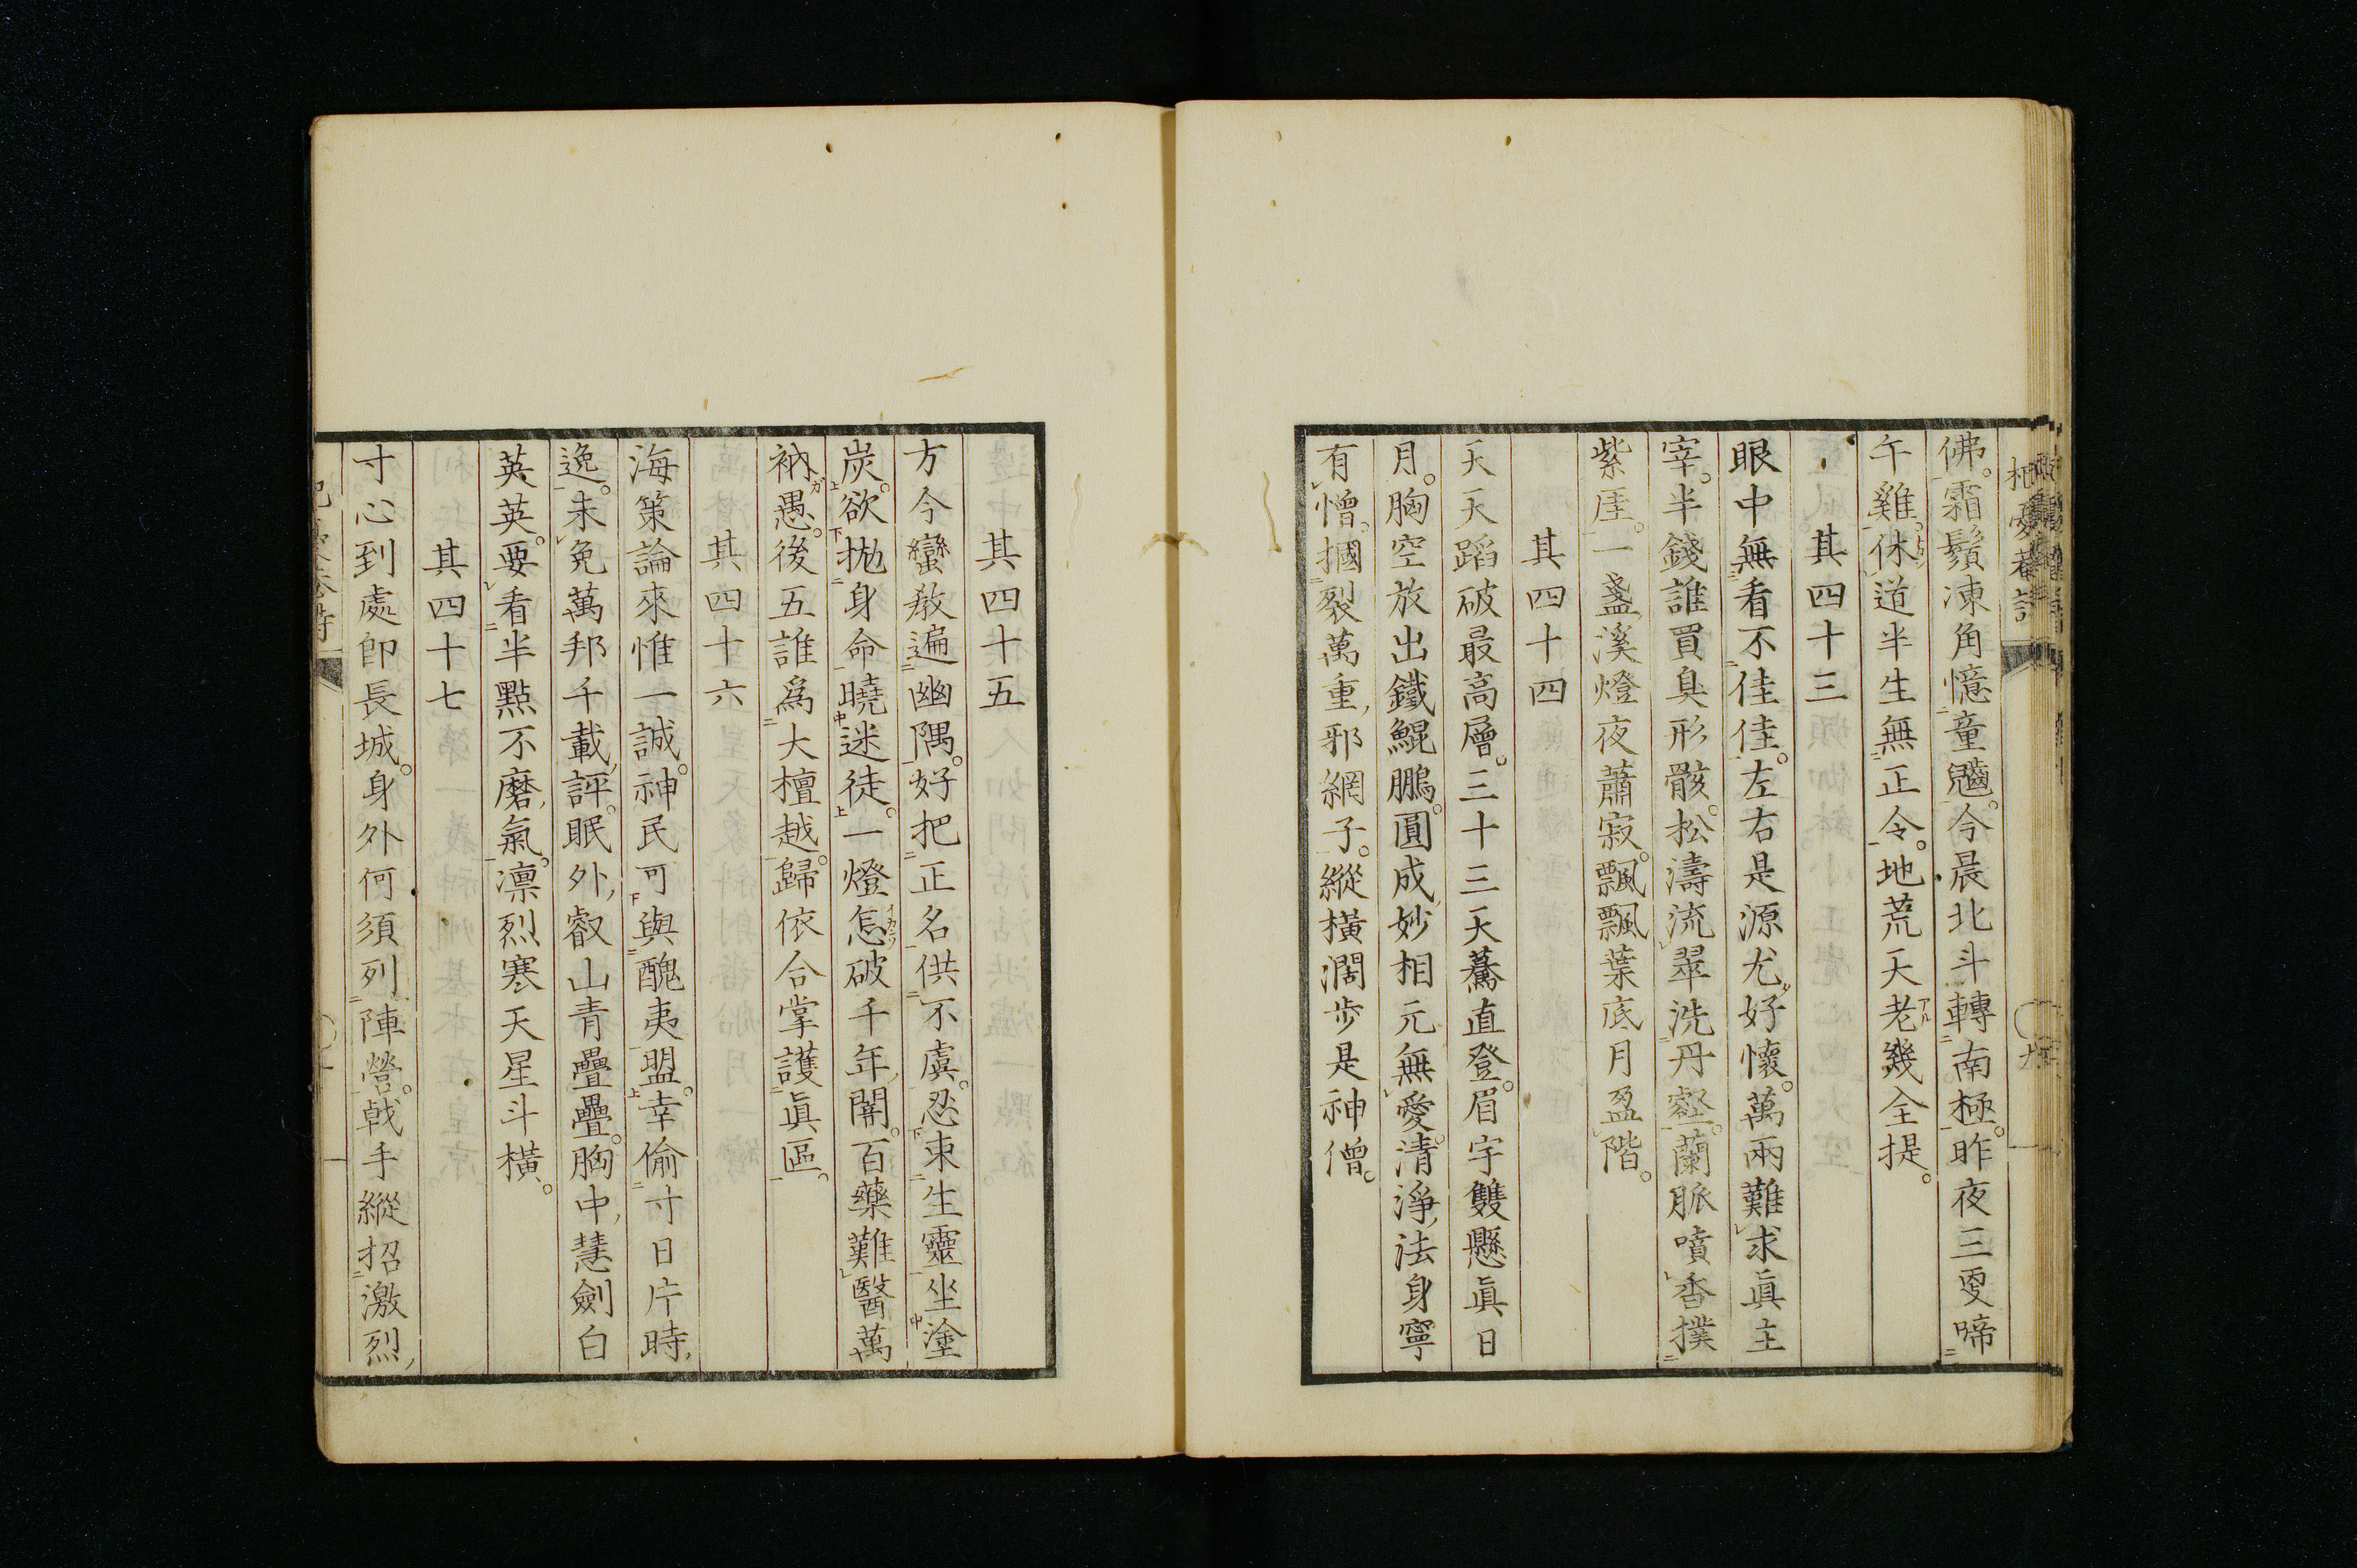 佛。霜鬚凍角憶童。今晨北斗轉南極。昨夜三更啼
午雞。休道半生無正令。地荒天老幾全提。
其四十三
眼中無看不佳佳。左右是源尤好懷。萬兩難求眞主
宰。半錢誰買臭形骸。松濤流翠洗丹壑。蘭脈噴香撲
紫厓。一盞溪燈夜蕭寂。飄飄葉底月盈階。
其四十四
天天蹈破最高層。三十三天驀直登。眉宇雙懸眞日
月。胸空放出鐵鯤鵬。圓成妙相元無愛。清淨法身寧
有憎。摑裂萬重邪網子。縱橫濶步是神僧。
其四十五
方今蠻教遍幽隅。好把正名供不虞。忍束生靈坐塗
炭。欲拋身命曉迷徒。一燈怎破千年闇。百藥難醫萬
衲愚。後五誰爲大檀越。歸依合掌護眞區。
其四十六
海策論來惟一誠。神民可與醜夷盟。幸偷寸日片時
逸。未免萬邦千載評。眠外叡山青疊疊。胸中慧劍白
英英。要看半點不磨氣。凛烈寒天星斗橫。
其四十七
寸心到處卽長城。身外何須列陣營。戟手縱招激烈